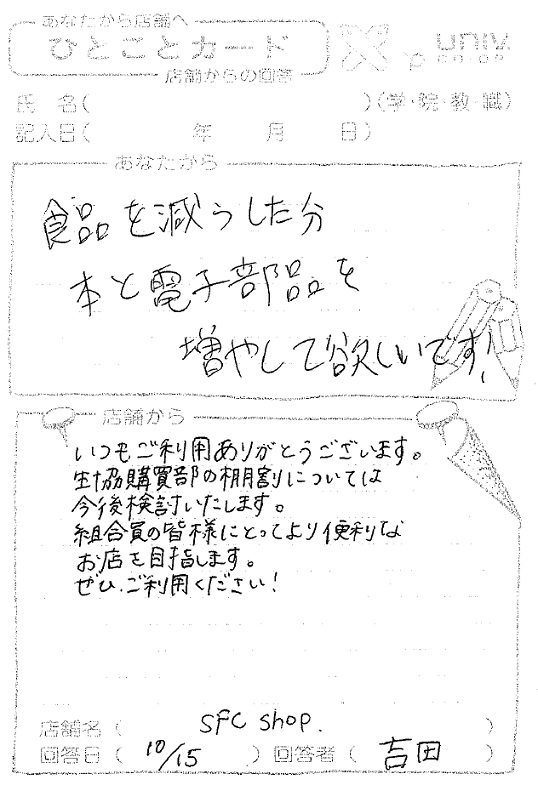 あなたから店舗へ
ひとことカード
店舗からの回答
univ.
CO-OP
氏　名(　　　　　　　　)(学・院・教・職)
記入日(　　　年　　月　　日)
あなたから
食品を減らした分
本と電子部品を
増やして欲しいです!
店舗から
いつもご利用ありがとうございます。
生協購買部の棚割については
今後検討いたします。
組合員の皆様にとってより便利な
お店を目指します。
ぜひ、ご利用ください!
店舗名(　SFC shop.　)
回答日(　10/15　)回答者(　吉田　)